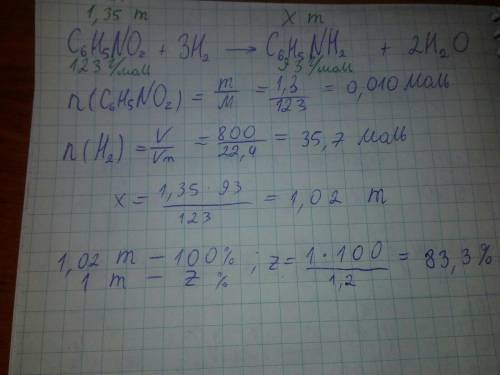 1,35 т х т
C₆H₅NO₂ + 3H₂ → C₆H₅NH₂ + 2H₂O
123 г/моль 93 г/моль
n(C₆H₅NO₂) = m/M = 1,3/123 = 0,010 моль
n(H₂) = V/Vm = 800/22,4 = 35,7 моль
х = 1,35 · 93/123 = 1,02 т
1,02 т — 100% ; z = 1 · 100/1,2 = 83,3%
1 т — z %